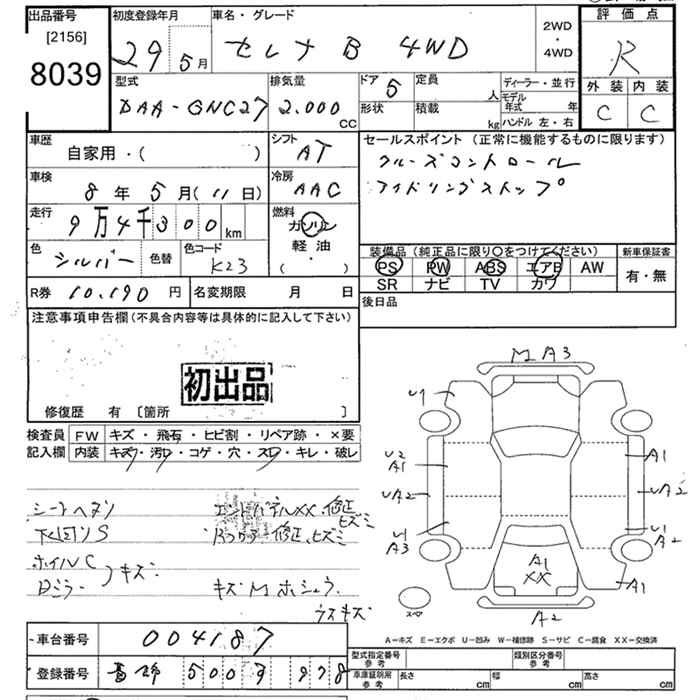 出品番号
[2156]
8039
初度登録年月
29 5月
車名・グレード
セレナ B 4WD
2WD
・
4WD
評価点
R
外装 内装
C C
型式
DAA-GNC27
排気量
2.000 CC
ドア 5
形状
定員 人
積載 kg
ディーラー・並行
モデル年式 年
ハンドル 左・右
車歴
自家用・( )
シフト
AT
セールスポイント (正常に機能するものに限ります)
クルーズコントロール
アイドリングストップ
車検
8年 5月(11日)
冷房
AAC
走行
9万4千300km
燃料
ガソリン
軽油
( ・ )
色
シルバー
色替
色コード
K23
装備品 (純正品に限り〇をつけてください)
PS PW ABS エアB AW
SR ナビ TV カワ
新車保証書
有・無
R券 10.190 円
名変期限 月 日
後日品
注意事項申告欄(不具合内容等は具体的に記入して下さい)
初出品
修復歴 有 〔箇所 〕
検査員
記入欄
FW キズ・飛石・ヒビ割・リペア跡・×要
内装 キズ・汚レ・コゲ・穴・スレ・キレ・破レ
シートヘタリ
下回りS
ホイルC
Dミラー
キズ
エンドパネルXX、修正
ヒズミ
修正、ヒズミ
キズM ホシュウ
ウスキズ
M A3
U1
U2
A1
UA2
U1
A3
A1
UA2
U1
A2
A1
XX
A1
A2
スペア
A-キズ E-エクボ U-凹み W-補修跡 S-サビ C-腐食 XX-交換済
車台番号
004187
登録番号
500 978
型式指定番号
参考
類別区分番号
参考
車庫証明用
参考
長さ cm
幅 cm
高さ cm